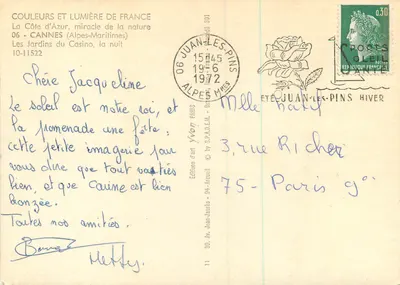 COULEURS ET LUMIÈRE DE FRANCE
La Côte d'Azur, miracle de la nature
06 - CANNES (Alpes-Maritimes)
Les Jardins du Casino, la nuit
10-11522
Chère Jacqueline
Le soleil est notre roi, et
la promenade une fête :
cette petite imagerie pour
vous dire que tout va très
bien, et que Carine est bien
bonzée.
Toutes nos amitiés.
06 JUAN-LES-PINS
15H45
19-6
1972
ALPES Mmes
SPORTS
SOLEIL
SANTÉ
ETE-JUAN-LES-PINS HIVER
0,30
Editions d'art Yvon
Mlle
3, rue Richer
75 - Paris 9e